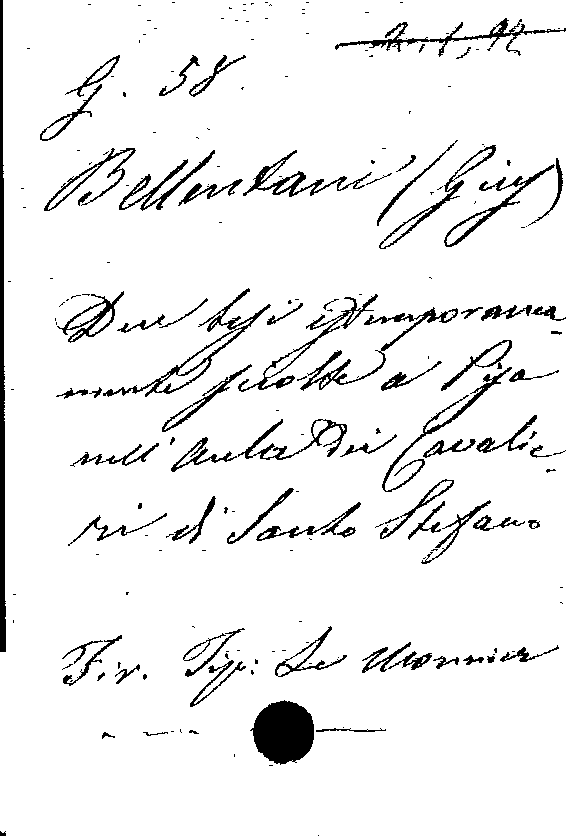 2, 1, 92
G. 58.
Bellentani (Gius)
Due tesi estemporanea-
mente sciolte a Pisa
nell' Aula dei Cavalie-
ri di Santo Stefano
Fir. Tip: Le Monnier